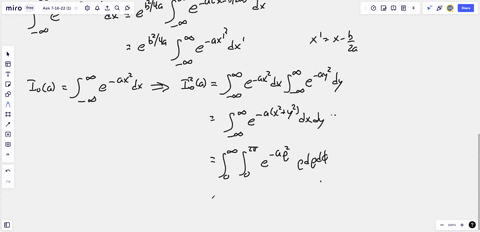 miro Free Ask 7-16-22 (1)
∫_{-∞}^{∞} e dx = e^{b²/4a} ∫_{-∞}^{∞} e dx
= e^{b²/4a} ∫_{-∞}^{∞} e^{-ax'²} dx' x' = x - b/2a
I₀(a) = ∫_{-∞}^{∞} e^{-ax²} dx ⟹ I₀²(a) = ∫_{-∞}^{∞} e^{-ax²} dx ∫_{-∞}^{∞} e^{-ay²} dy
= ∫_{-∞}^{∞} e^{-a(x²+y²)} dx dy
= ∫_0^∞ ∫_0^{2π} e^{-aρ²} ρdρdϕ